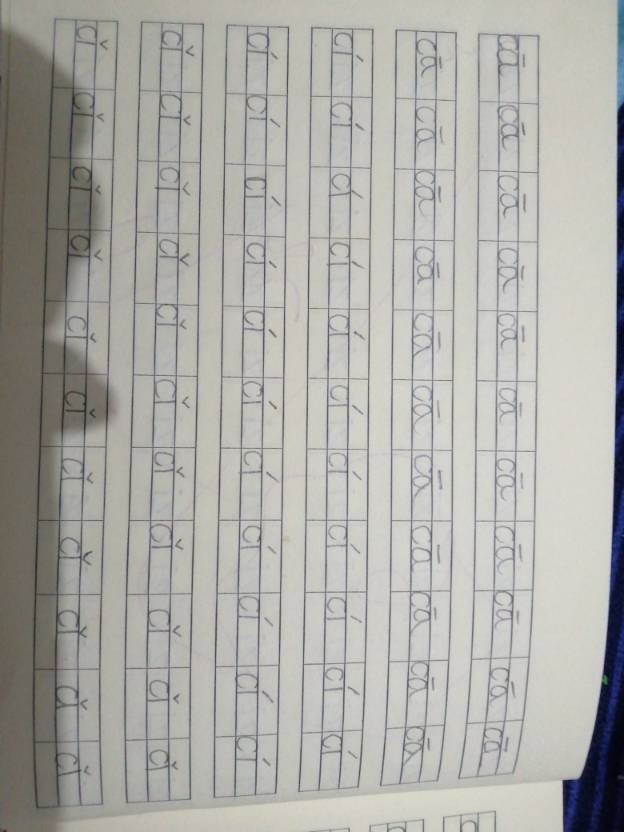 cā cā cā cā cā cā cā cā cā cā cā
cā cā cā cā cā cā cā cā cā cā cā
cí cí cí cí cí cí cí cí cí cí cí
cí cí cí cí cí cí cí cí cí cí cí
cǐ cǐ cǐ cǐ cǐ cǐ cǐ cǐ cǐ cǐ cǐ
cǐ cǐ cǐ cǐ cǐ cǐ cǐ cǐ cǐ cǐ cǐ